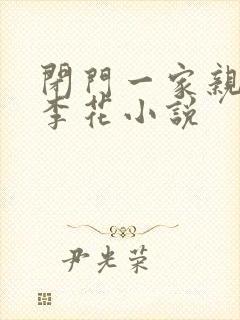 閉門一家親
李花小說
尹光荣